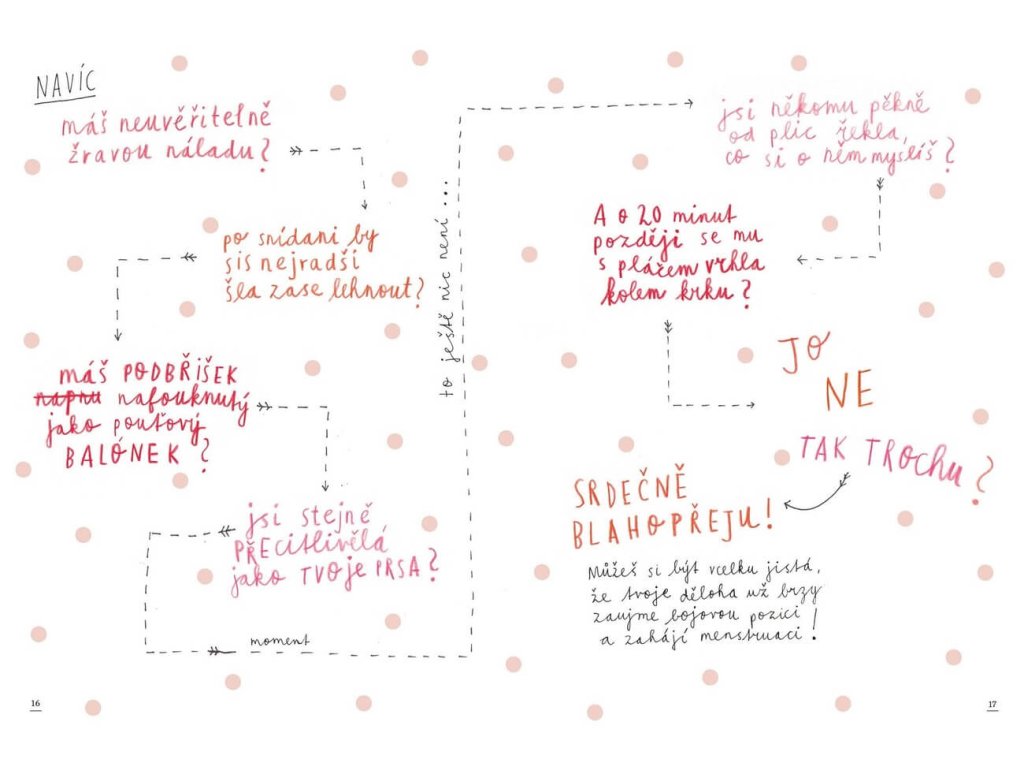 NAVÍC
máš neuvěřitelně
žravou náladu?
po snídani by
sis nejradši
šla zase lehnout?
máš PODBŘIŠEK
napnu nafouknutý
jako pouťový
BALÓNEK?
jsi stejně
PŘECITLIVĚLÁ
jako TVOJE PRSA?
moment
to ještě nic není...
jsi někomu pěkně
od plic řekla,
co si o něm myslíš?
A o 20 minut
později se mu
s pláčem vrhla
kolem krku?
JO
NE
TAK TROCHU?
SRDEČNĚ
BLAHOPŘEJU!
Můžeš si být vcelku jistá,
že tvoje děloha už brzy
zaujme bojovou pozici
a zahájí menstruaci!
16
17